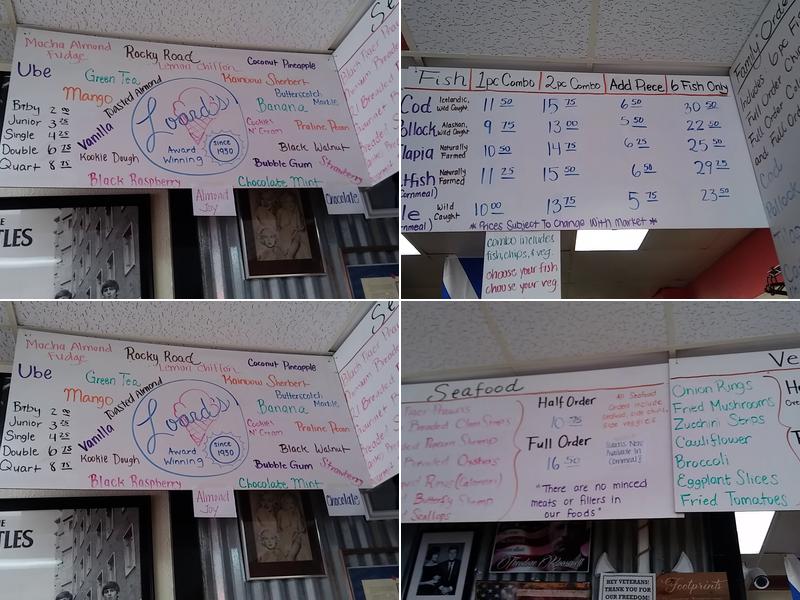 Mocha Almond
Fudge
Rocky Road
Lemon Chiffon
Coconut Pineapple
Ube
Green Tea
Toasted Almond
Rainbow Sherbert
Butterscotch
Marble
Mango
Banana
Bitby 2 00
Junior 3 25
Single 4 25
Double 6 75
Quart 8 75
Vanilla
Kookie Dough
Loard's
Award
Winning
since
1950
Cookies
N' Cream
Praline Pecan
Black Walnut
Bubble Gum
Black Raspberry
Chocolate Mint
Almond
Joy
Chocolate
Se
TLES
Fish 1pc Combo 2pc Combo Add Piece 6 Fish Only
Cod Icelandic, Wild Caught 11 50 15 75 6 50 30 50
ollock Alaskan, Wild Caught 9 75 13 00 5 50 22 50
lapia Naturally Farmed 10 50 14 75 6 25 25 50
tfish Naturally Farmed 11 25 15 50 6 50 29 25
(Cornmeal)
le Wild Caught 10 00 13 75 5 75 23 50
* Prices Subject To Change With Market *
combo includes
fish, chips, & veg.
choose your fish
choose your veg.
Family Order
Includes 6pc Fi
Full Order Ch
Full Order Col
and Full Or
Cod
Mocha Almond
Fudge
Rocky Road
Lemon Chiffon
Coconut Pineapple
Ube
Green Tea
Toasted Almond
Rainbow Sherbert
Butterscotch
Marble
Mango
Banana
Bitby 2 00
Junior 3 25
Single 4 25
Double 6 75
Quart 8 75
Vanilla
Kookie Dough
Loard's
Award
Winning
since
1950
Cookies
N' Cream
Praline Pecan
Black Walnut
Bubble Gum
Black Raspberry
Chocolate Mint
Almond
Joy
Chocolate
Se
TLES
Seafood
Tiger Prawns
Breaded Clam Strips
Popcorn Shrimp
Breaded Oysters
Rings (Calamari)
Butterfly Shrimp
Scallops
Half Order
10 75
Full Order
16 50
All Seafood
Orders include
side veggies
"There are no minced
meats or fillers in
our foods"
Ve
Onion Rings
Fried Mushrooms
Zucchini Strips
Cauliflower
Broccoli
Eggplant Slices
Fried Tomatoes
HEY VETERANS!
THANK YOU FOR
OUR FREEDOM!
Footprints